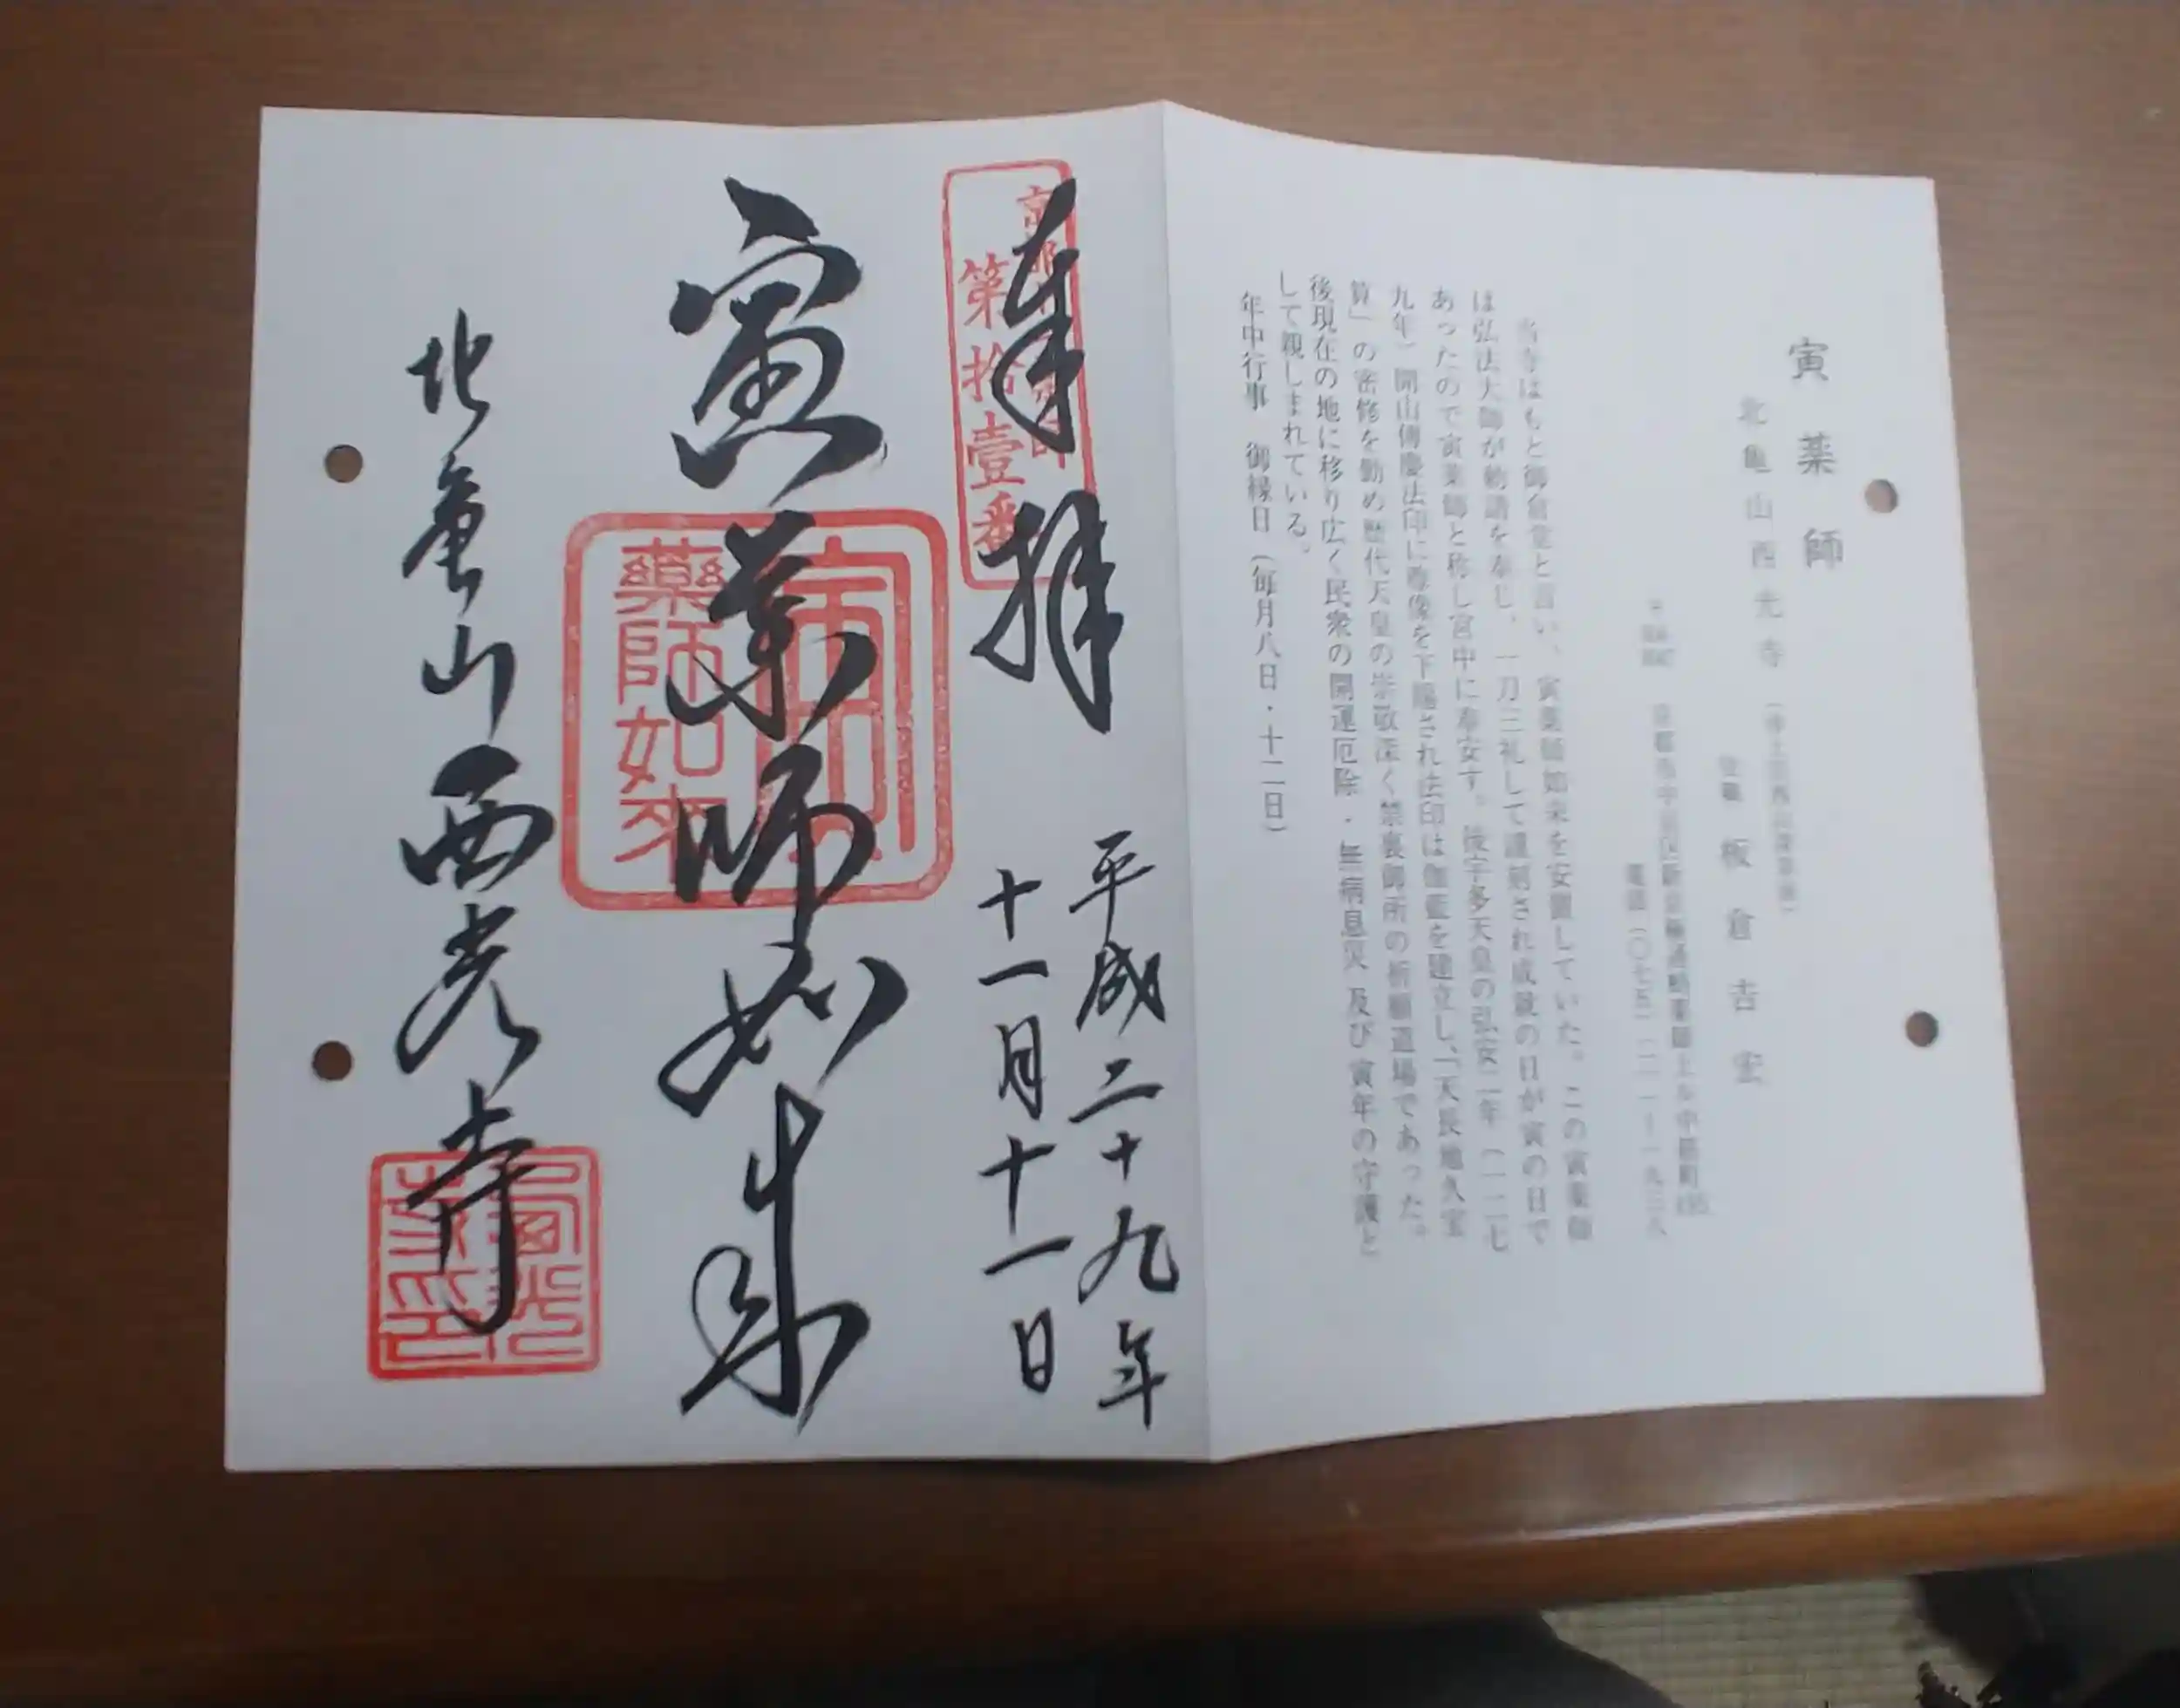 寅薬師
北亀山西光寺
住職 板倉吉宏
当寺はもと御倉堂と言い、寅薬師如来を安置していた。この寅薬師
は弘法大師が勅請を奉じ、一刀三礼して謹刻され成就の日が寅の日で
あったので寅薬師と称し宮中に奉安す。後宇多天皇の弘安二年(一二七
九年)開山傳慶法印に尊像を下賜され法印は伽藍を建立し、「天長地久宝
算」の密修を勤め歴代天皇の崇敬深く禁裏御所の祈願道場であった。
後現在の地に移り広く民衆の開運厄除・無病息災及び寅年の守護と
して親しまれている。
年中行事 御縁日(毎月八日・十二日)
奉拝
第拾壹番
平成二十九年
十一月十一日
寅薬師如来
藥師如來
北亀山西光寺